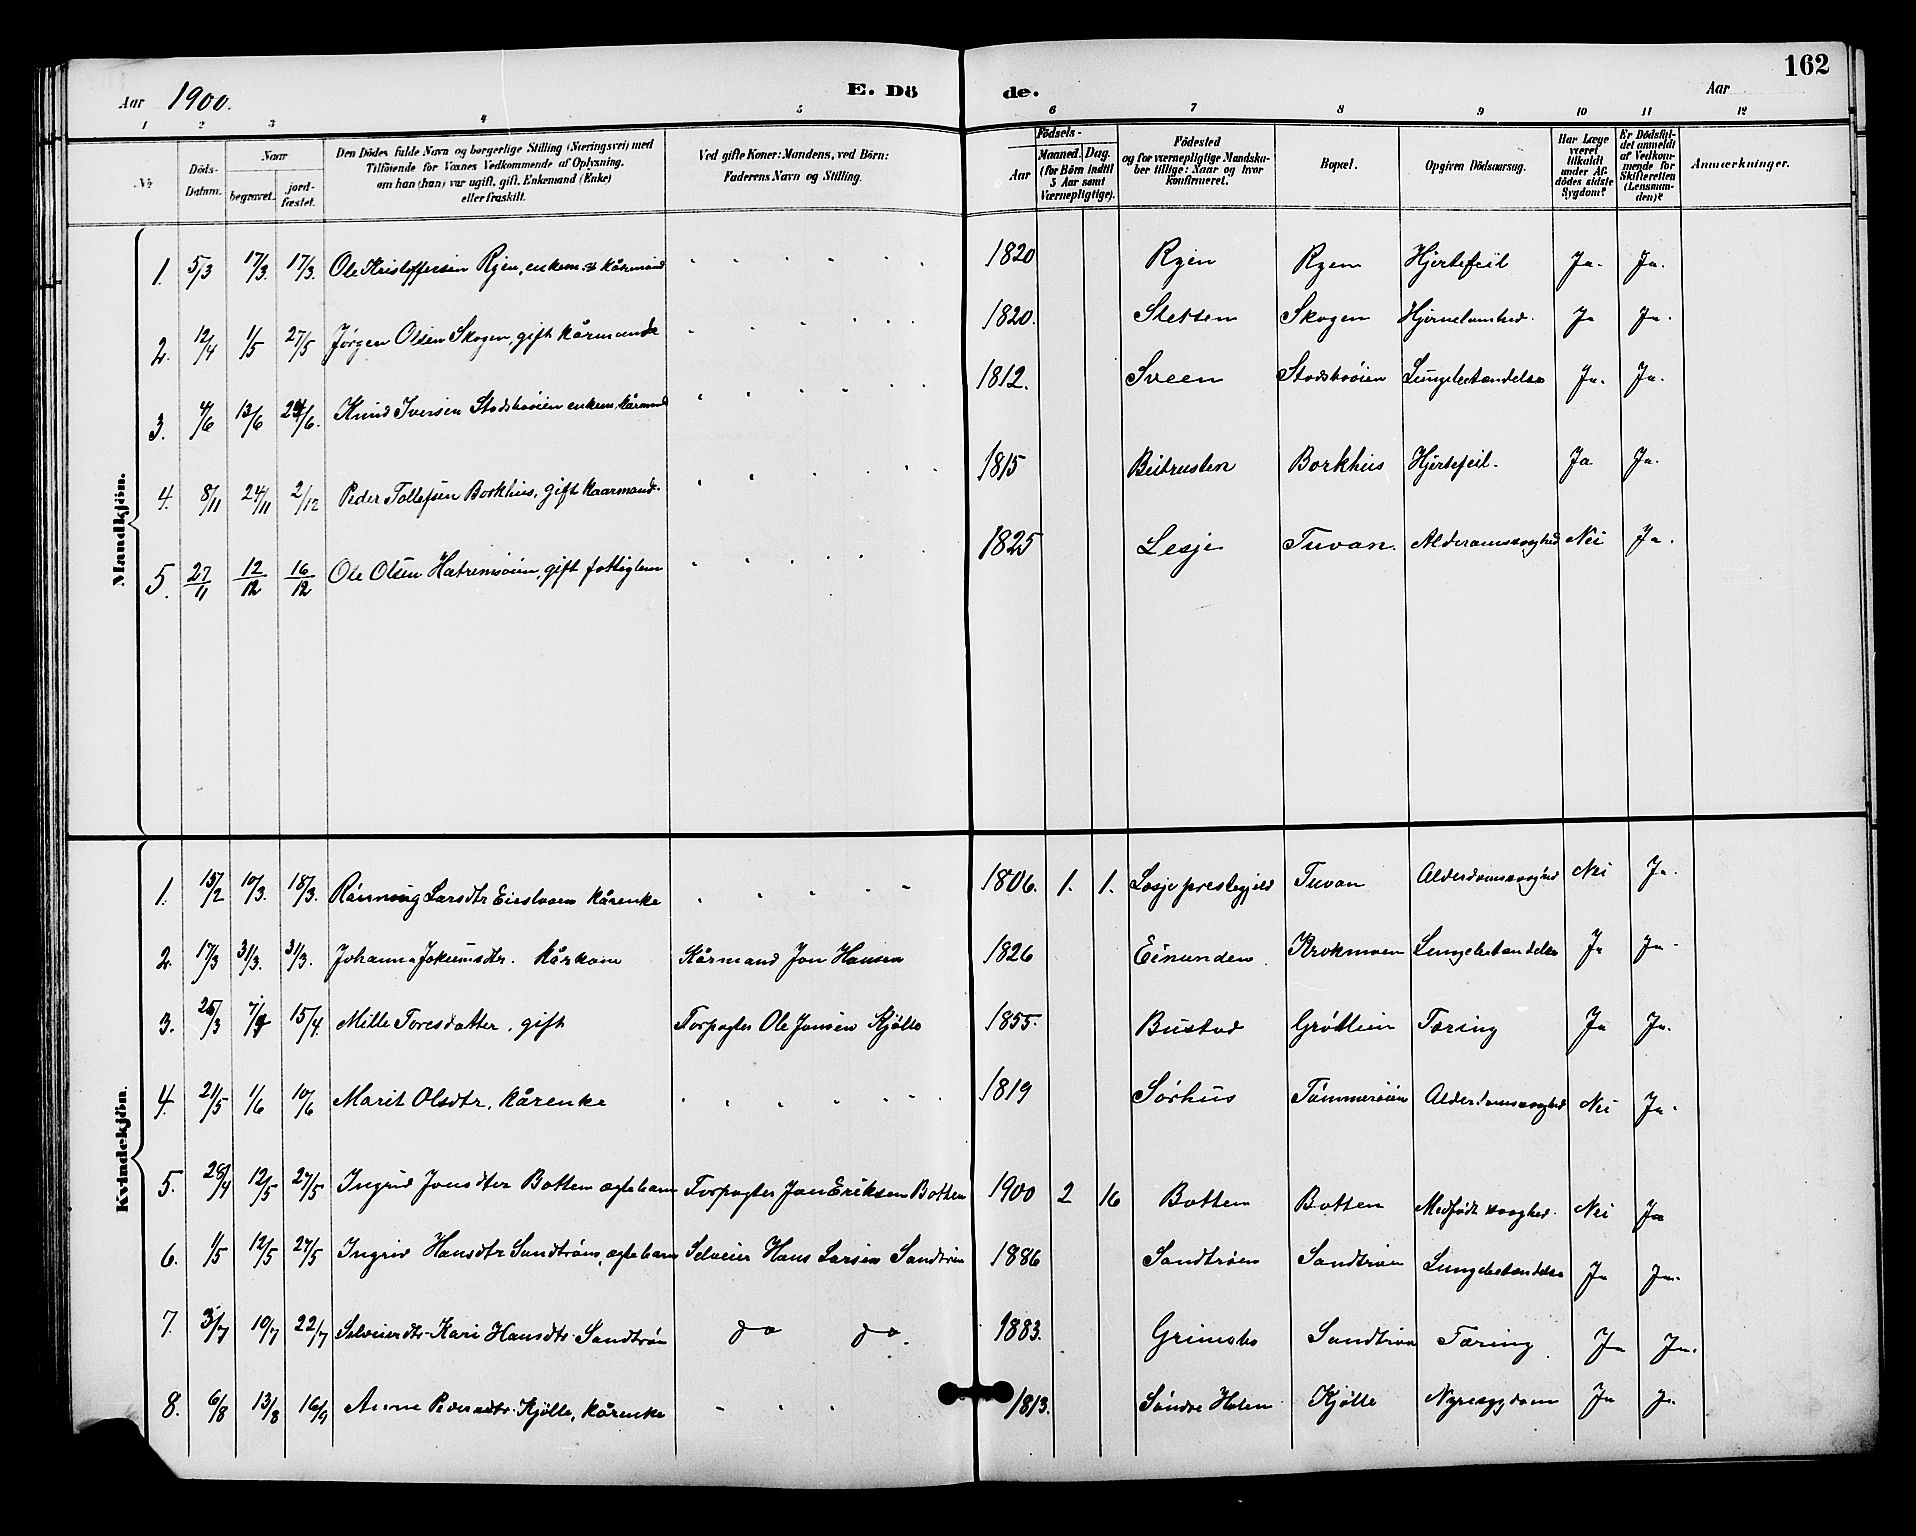 162
Aar 1900. E. Dö de. Aar
1 2 3 4 5 6 7 8 9 10 11 12
№ Döds-Datum. Naar begravet. jord-fæstet. Den Dödes fulde Navn og borgerlige Stilling (Næringsvei) med Tilföiende for Voxnes Vedkommende af Oplysning, om han (hun) var ugift, gift, Enkemand (Enke) eller fraskilt. Ved gifte Koner: Mandens, ved Börn: Faderens Navn og Stilling. Födsels- Aar Maaned. Dag. (for Börn indtil 5 Aar samt Værnepligtige). Födested og for værnepligtige Mandskaber tillige: Naar og hvor konfirmeret. Bopæl. Opgiven Dödsaarsag. Har Læge været tilkaldt under Afdödes sidste Sygdom? Er Dödsfaldet anmeldt af Vedkommende for Skifteretten (Lensmanden)? Anmærkninger.
Mandkjön.
1. 5/3 17/3. 17/3. Ole Kristoffersen Ryen, enkem. kårmand 1820 Ryen Ryen Hjertefeil Ja. Ja.
2. 12/4 1/5 27/5 Jørgen Olsen Skogen, gift kårmand 1820. Sletten Skogen Hjernelamhed. Ja Ja.
3. 4/6 13/6 24/6. Knud Iversen Stodsbrøien enkem. kårmand 1812. Sveen Stodsbrøien Lungebetændelse Ja. Ja.
4. 8/11 24/11 2/12 Peder Tollefsen Borkhus, gift kaarmand. 1815 Beitrusten Borkhus Hjertefeil. Ja Ja.
5. 27/11 12/12 16/12 Ole Olsen Hatremoien, gift fattiglem 1825 Lesje Tuvan. Alderdomssvaghed Nei Ja.
Kvindekjön.
1. 15/2 10/3. 18/3. Rønnoug Larsdtr kårenke 1806. 1. 1. Lesje prestegjeld Tuvan Alderdomssvaghed Nei Ja.
2. 17/3 31/3. 31/3. Johanna Jokumsdtr. kårkone Kårmand Jon Hansen 1826 Einunden Krokmoen Lungebetændelse Ja Ja
3. 25/3 7/4 15/4 Mille Toresdatter, gift Forpagter Ole Jonsen Kjølle 1855. Bustad Grøtlien Tæring Ja Ja.
4. 21/5 1/6 10/6 Marit Olsdtr, kårenke 1819 Sørhus Tømmerøien Alderdomssvaghed Nei Ja.
5. 28/4 12/5 27/5 Ingrid Jonsdter Botten ægtebarn Forpagter Jon Eriksen Botten 1900 2 16 Botten Botten Medfødt svaghed. Nei Ja
6. 1/5 12/5 27/5 Ingrid Hansdtr Sandtrøen, ægtebarn Selveier Hans Larsen Sandtrøen 1886 Sandtrøen Sandtrøen Lungebetændelse Ja Ja.
7. 3/7 10/7 22/7 Selveierdtr Kari Hansdtr Sandtrøen do do. 1883. Grimsbo Sandtrøen Tæring Ja Ja.
8. 6/8 13/8 16/9 Anne Pedersdtr Kjølle, kårenke 1813. Søndre Holen Kjølle Nyresygdom Ja Ja.